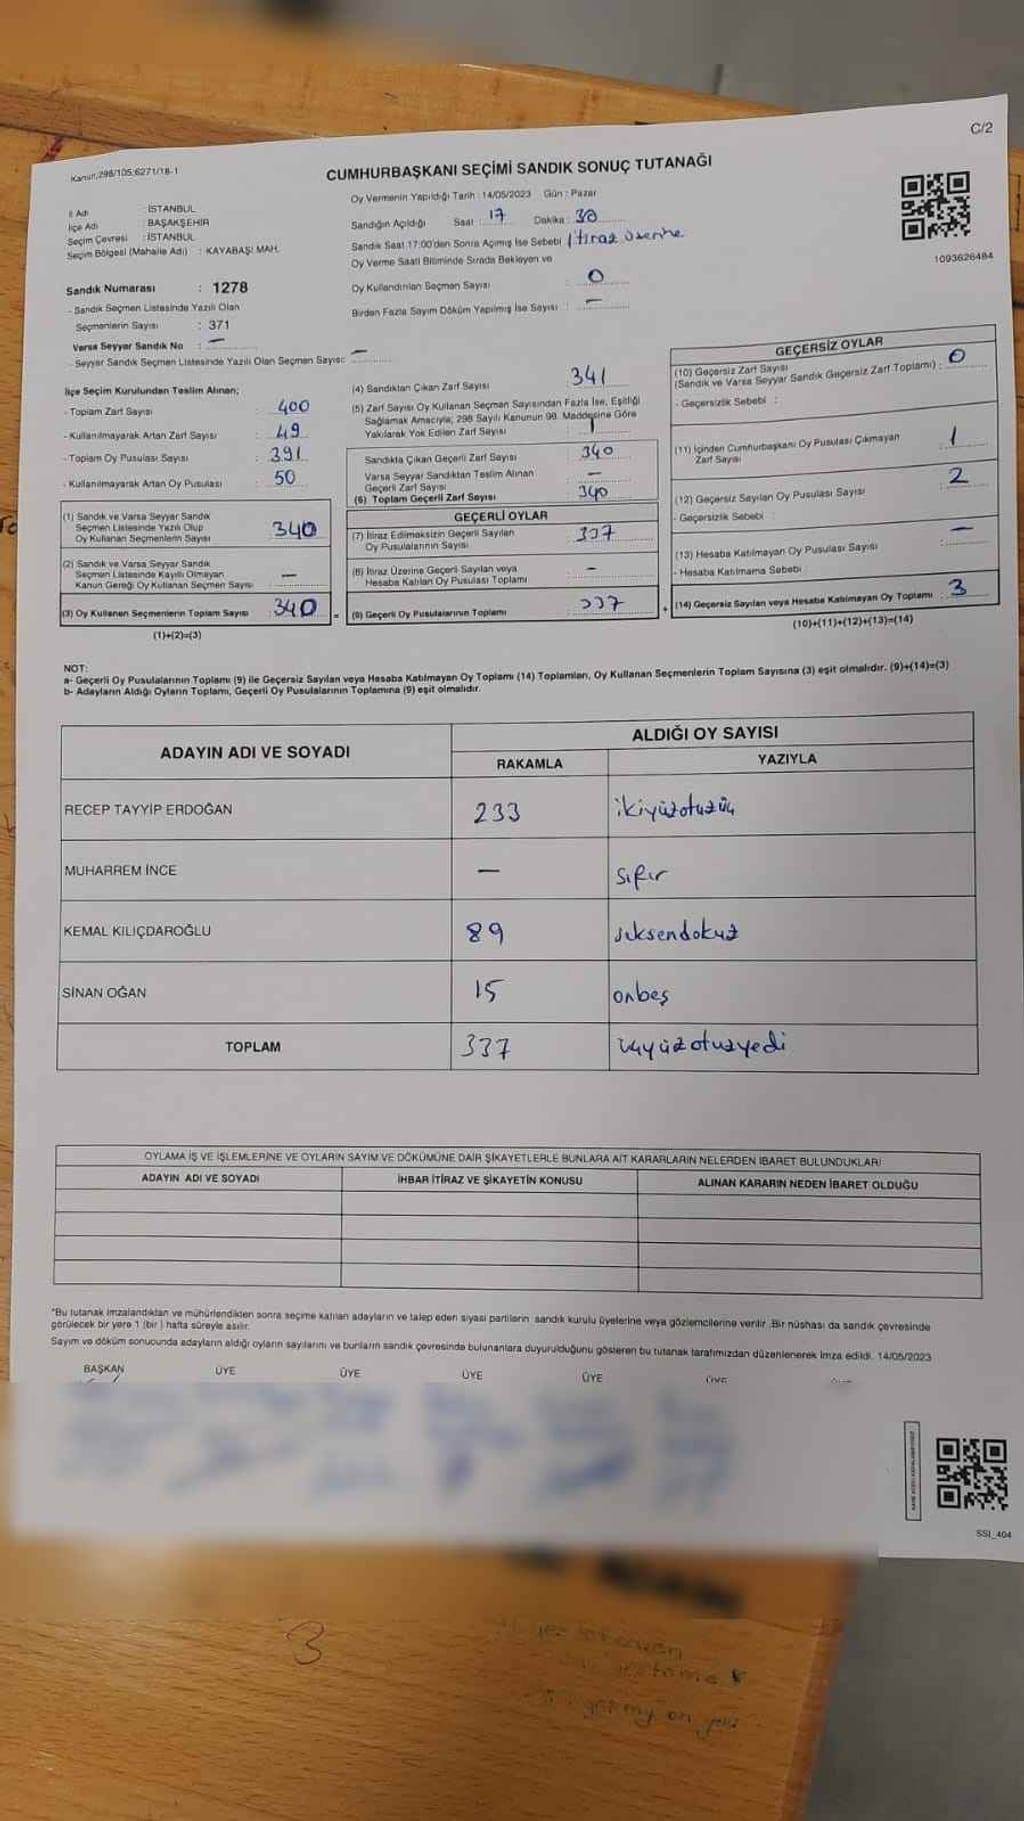 C/2
Kanun:298/105,6271/18-1
CUMHURBAŞKANI SEÇİMİ SANDIK SONUÇ TUTANAĞI
Oy Vermenin Yapıldığı Tarih : 14/05/2023 Gün : Pazar
İl Adı : İSTANBUL
İlçe Adı : BAŞAKŞEHİR
Seçim Çevresi : İSTANBUL
Seçim Bölgesi (Mahalle Adı) : KAYABAŞI MAH.
Sandığın Açıldığı Saat : 17 Dakika : 30
Sandık Saat 17:00'den Sonra Açılmış İse Sebebi : itiraz üzerine
Oy Verme Saati Bitiminde Sırada Bekleyen ve
Oy Kullandırılan Seçmen Sayısı : 0
Birden Fazla Sayım Döküm Yapılmış İse Sayısı : —
1093626484
Sandık Numarası : 1278
- Sandık Seçmen Listesinde Yazılı Olan
Seçmenlerin Sayısı : 371
Varsa Seyyar Sandık No : —
- Seyyar Sandık Seçmen Listesinde Yazılı Olan Seçmen Sayısı: —
İlçe Seçim Kurulundan Teslim Alınan;
- Toplam Zarf Sayısı : 400
- Kullanılmayarak Artan Zarf Sayısı : 49
- Toplam Oy Pusulası Sayısı : 391
- Kullanılmayarak Artan Oy Pusulası : 50
(1) Sandık ve Varsa Seyyar Sandık
Seçmen Listesinde Yazılı Olup
Oy Kullanan Seçmenlerin Sayısı : 340
(2) Sandık ve Varsa Seyyar Sandık
Seçmen Listesinde Kayıtlı Olmayan
Kanun Gereği Oy Kullanan Seçmen Sayısı : —
(3) Oy Kullanan Seçmenlerin Toplam Sayısı : 340 =
(1)+(2)=(3)
(4) Sandıktan Çıkan Zarf Sayısı : 341
(5) Zarf Sayısı Oy Kullanan Seçmen Sayısından Fazla İse, Eşitliği
Sağlamak Amacıyla; 298 Sayılı Kanunun 98. Maddesine Göre
Yakılarak Yok Edilen Zarf Sayısı : 1
Sandıkta Çıkan Geçerli Zarf Sayısı : 340
Varsa Seyyar Sandıktan Teslim Alınan
Geçerli Zarf Sayısı : —
(6) Toplam Geçerli Zarf Sayısı : 340
GEÇERLİ OYLAR
(7) İtiraz Edilmeksizin Geçerli Sayılan
Oy Pusulalarının Sayısı : 337
(8) İtiraz Üzerine Geçerli Sayılan veya
Hesaba Katılan Oy Pusulası Toplamı : —
(9) Geçerli Oy Pusulalarının Toplamı : 337 +
GEÇERSİZ OYLAR
(10) Geçersiz Zarf Sayısı
(Sandık ve Varsa Seyyar Sandık Geçersiz Zarf Toplamı) : 0
- Geçersizlik Sebebi :
(11) İçinden Cumhurbaşkanı Oy Pusulası Çıkmayan
Zarf Sayısı : 1
(12) Geçersiz Sayılan Oy Pusulası Sayısı : 2
- Geçersizlik Sebebi :
(13) Hesaba Katılmayan Oy Pusulası Sayısı : —
- Hesaba Katılmama Sebebi :
(14) Geçersiz Sayılan veya Hesaba Katılmayan Oy Toplamı : 3
(10)+(11)+(12)+(13)=(14)
NOT:
a- Geçerli Oy Pusulalarının Toplamı (9) ile Geçersiz Sayılan veya Hesaba Katılmayan Oy Toplamı (14) Toplamları, Oy Kullanan Seçmenlerin Toplam Sayısına (3) eşit olmalıdır. (9)+(14)=(3)
b- Adayların Aldığı Oyların Toplamı, Geçerli Oy Pusulalarının Toplamına (9) eşit olmalıdır.
ADAYIN ADI VE SOYADI
ALDIĞI OY SAYISI
RAKAMLA YAZIYLA
RECEP TAYYİP ERDOĞAN 233 ikiyüzotuzüç
MUHARREM İNCE — sıfır
KEMAL KILIÇDAROĞLU 89 seksendokuz
SİNAN OĞAN 15 onbeş
TOPLAM 337 üçyüzotuzyedi
OYLAMA İŞ VE İŞLEMLERİNE VE OYLARIN SAYIM VE DÖKÜMÜNE DAİR ŞİKAYETLERLE BUNLARA AİT KARARLARIN NELERDEN İBARET BULUNDUKLARI
ADAYIN ADI VE SOYADI İHBAR İTİRAZ VE ŞİKAYETİN KONUSU ALINAN KARARIN NEDEN İBARET OLDUĞU
*Bu tutanak imzalandıktan ve mühürlendikten sonra seçime katılan adayların ve talep eden siyasi partilerin sandık kurulu üyelerine veya gözlemcilerine verilir. Bir nüshası da sandık çevresinde
görülecek bir yere 1 (bir ) hafta süreyle asılır.
Sayım ve döküm sonucunda adayların aldığı oyların sayılarını ve bunların sandık çevresinde bulunanlara duyurulduğunu gösteren bu tutanak tarafımızdan düzenlenerek imza edildi. 14/05/2023
BAŞKAN ÜYE ÜYE ÜYE ÜYE ÜYE
SSI_404
3